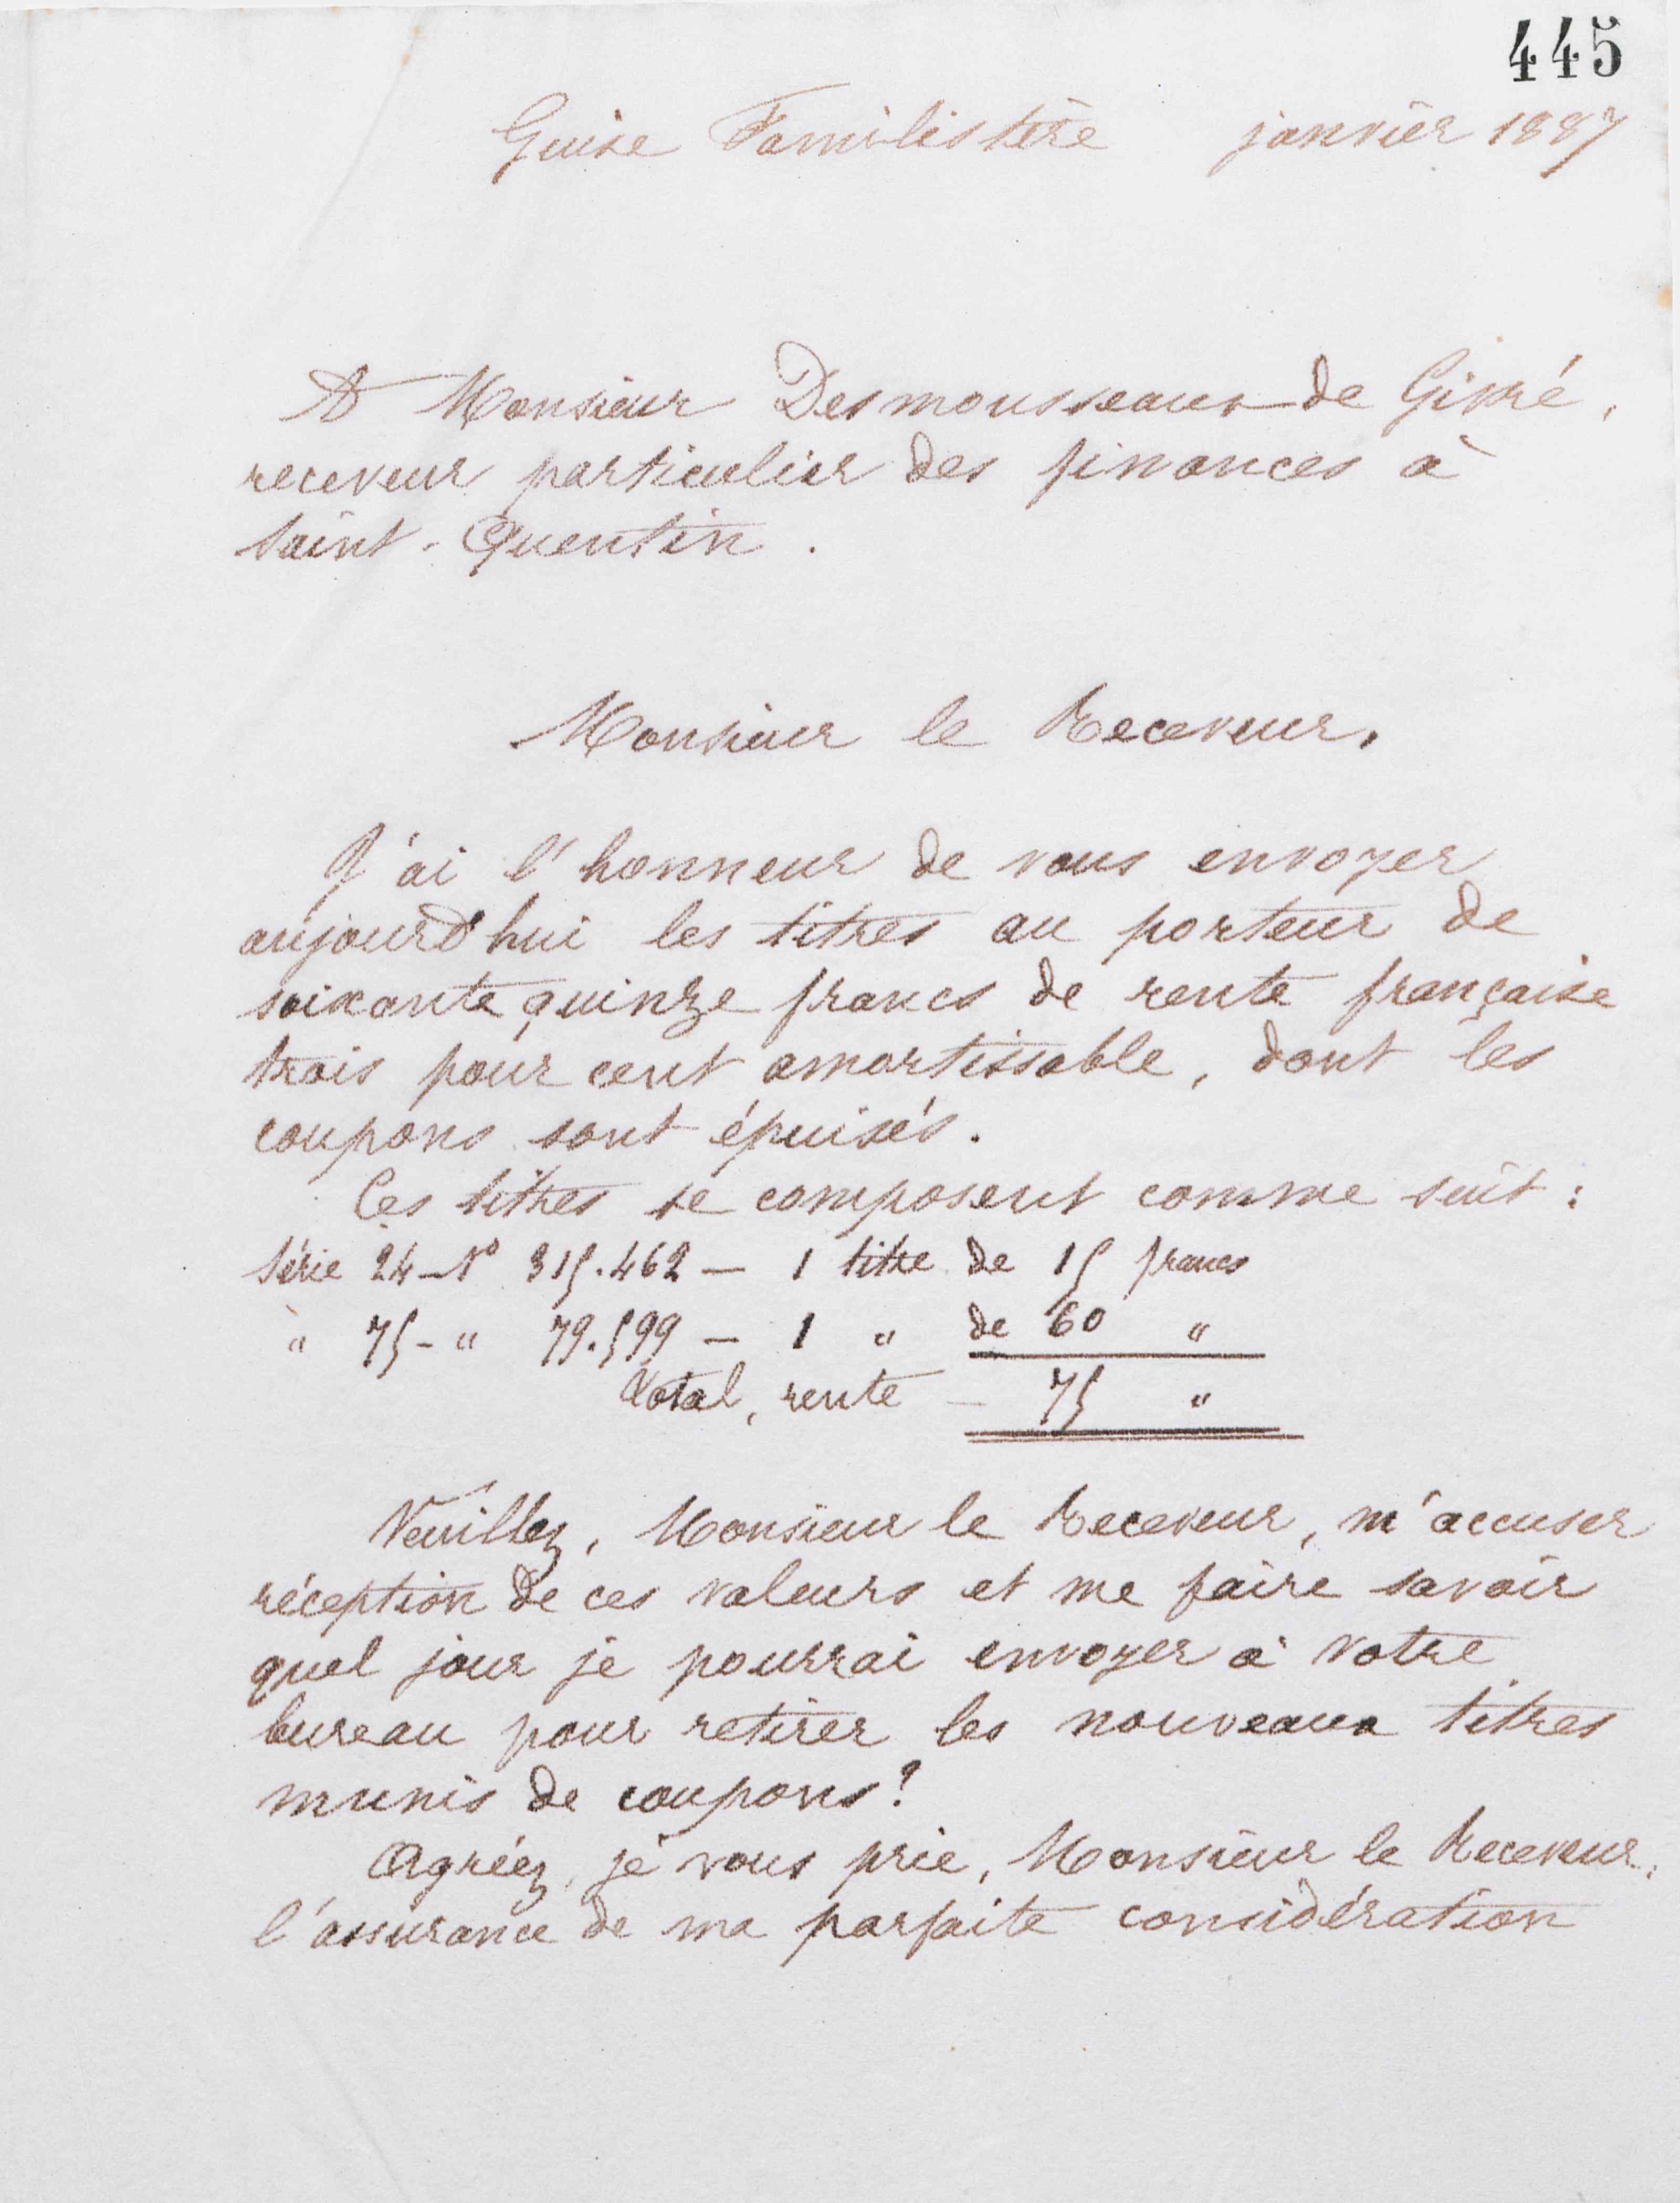 445
Guise Familistère janvier 1887
A Monsieur Desmousseaux de Givré,
receveur particulier des finances à
Saint-Quentin.
Monsieur le Receveur,
J'ai l'honneur de vous envoyer
aujourd'hui les titres au porteur de
soixante quinze francs de rente française
trois pour cent amortissable, dont les
coupons sont épuisés.
Ces titres se composent comme suit :
Série 24 - N° 315.462 - 1 titre de 15 francs
" 75 - " 79.599 - 1 " de 60 "
Total, rente - 75 "
Veuillez, Monsieur le Receveur, m'accuser
réception de ces valeurs et me faire savoir
quel jour je pourrai envoyer à votre
bureau pour retirer les nouveaux titres
munis de coupons ?
Agréez, je vous prie, Monsieur le Receveur,
l'assurance de ma parfaite considération